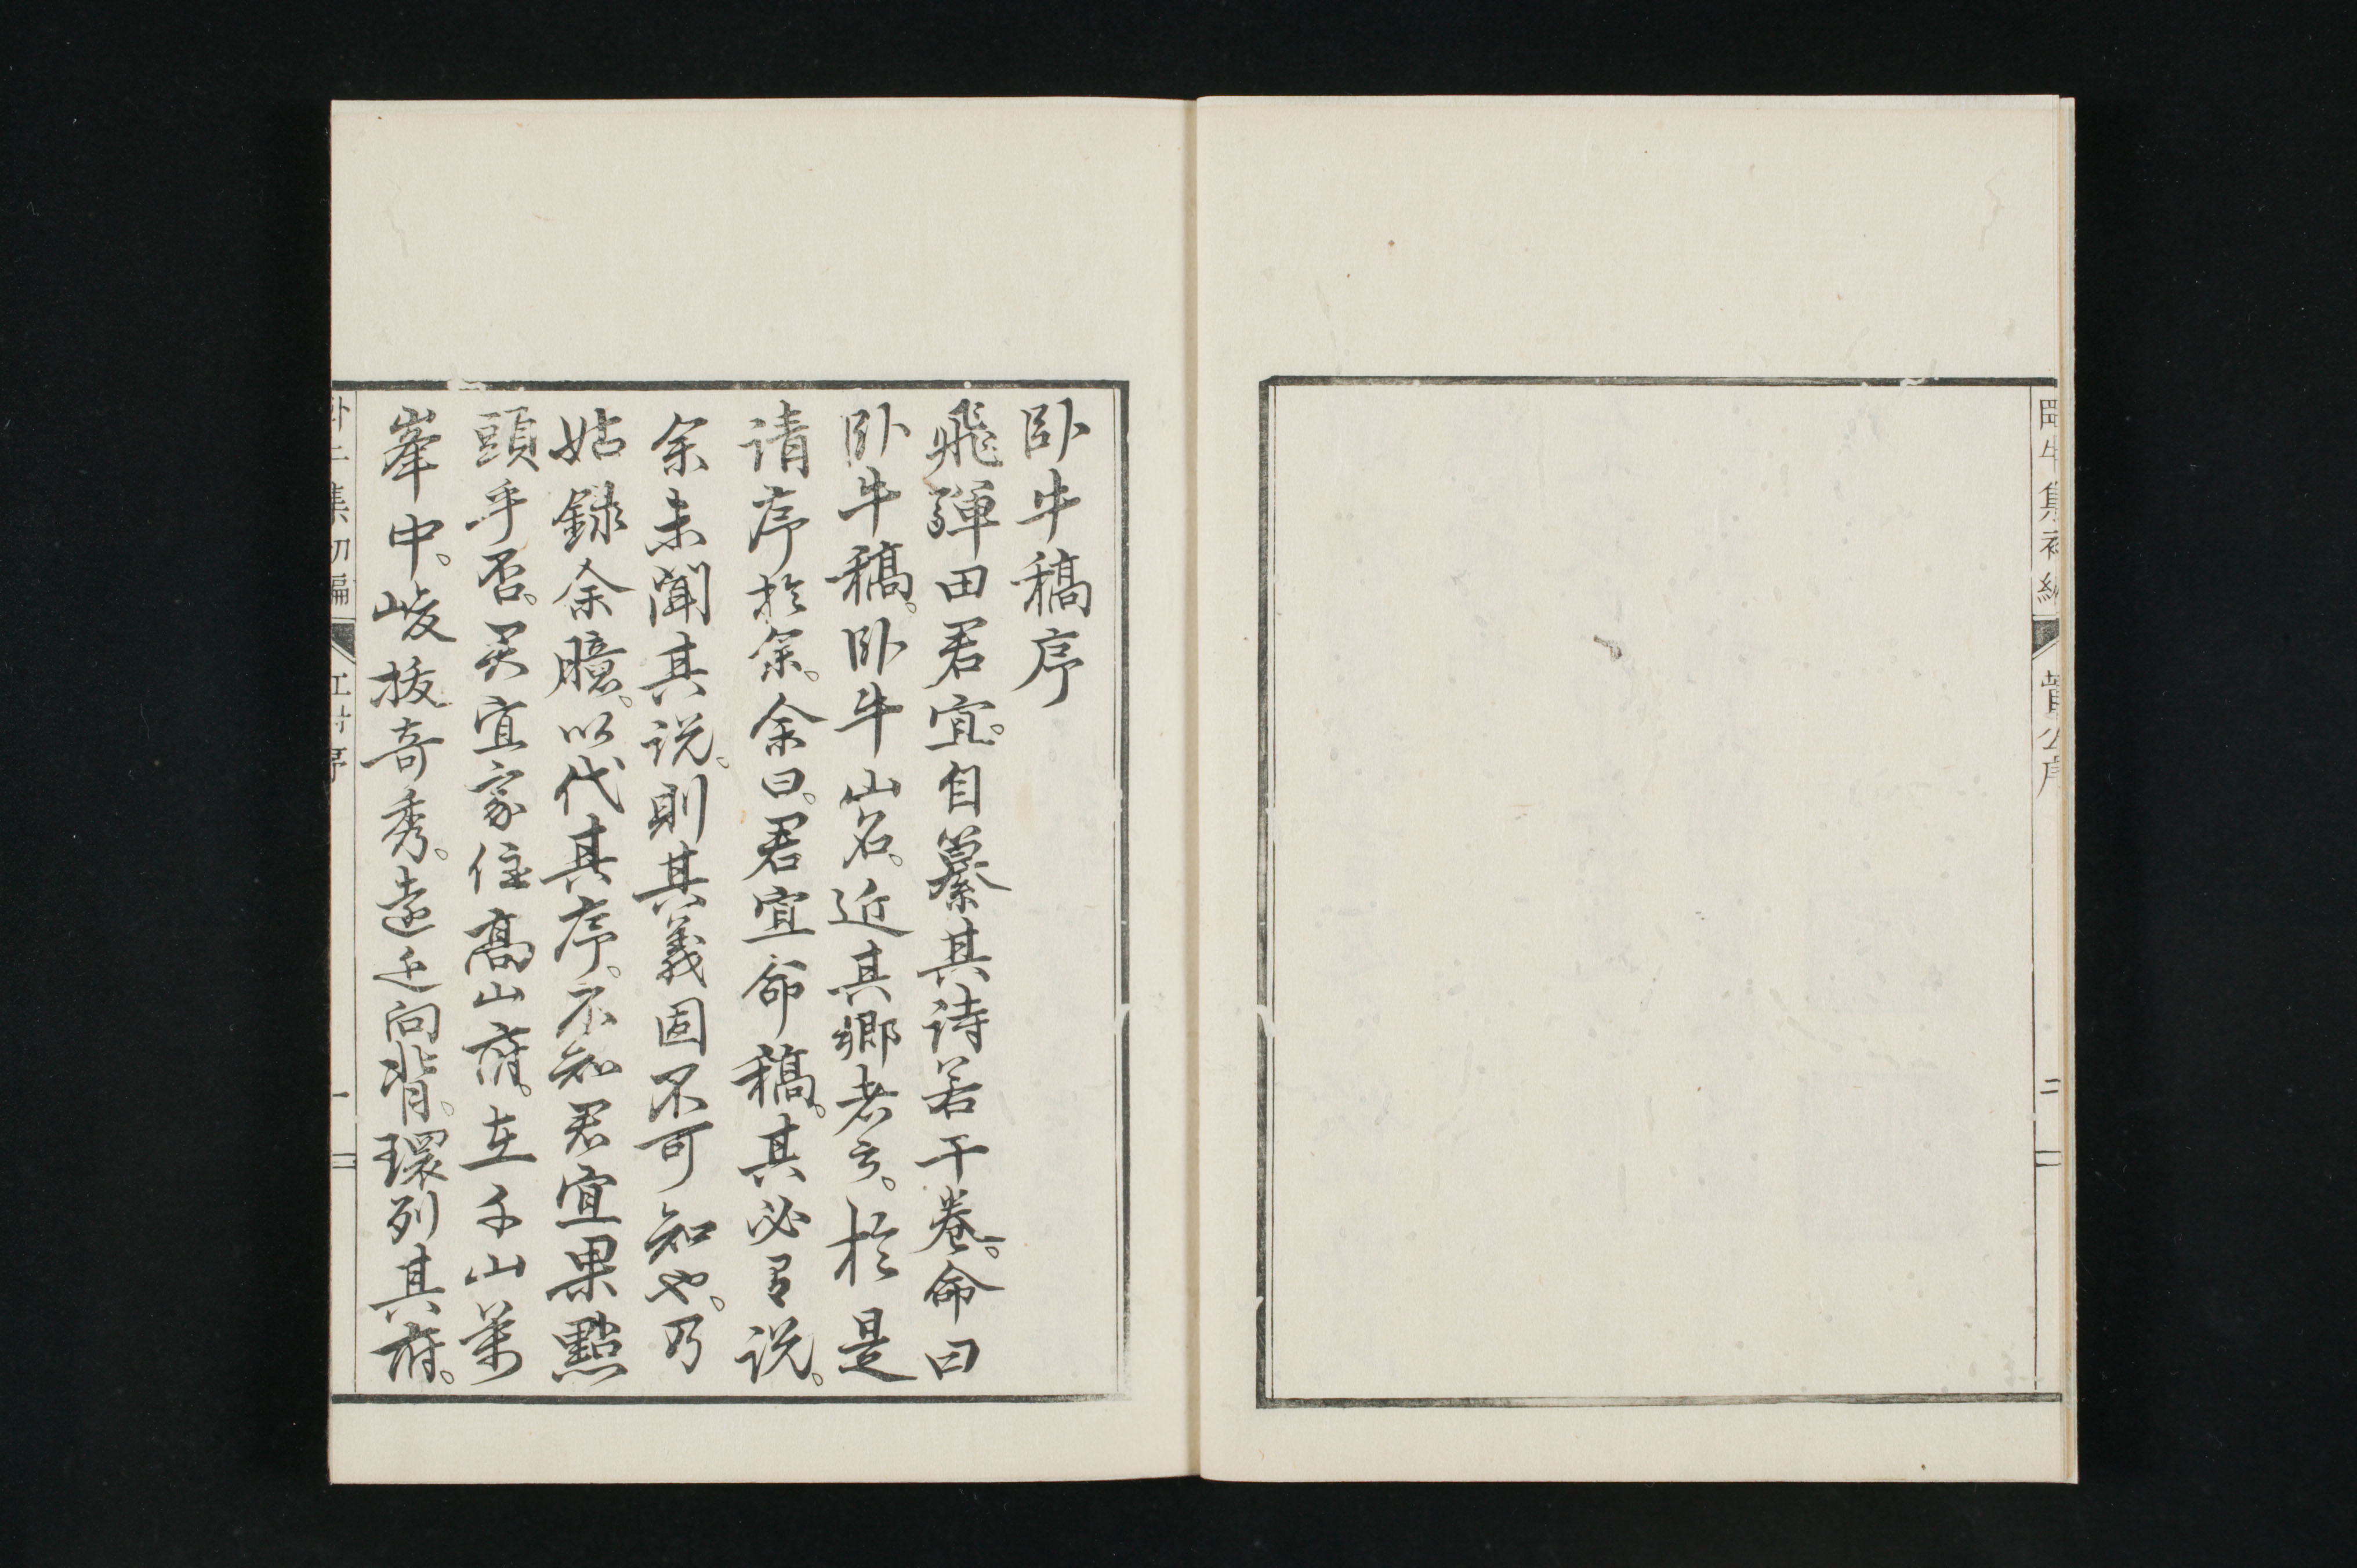 臥牛集初編
菅公序
二
臥牛稿序
飛驒田君宜。自纂其詩若干卷。命曰
臥牛稿。臥牛山名。近其鄉者云。於是
請序於余。余曰。君宜命稿。其必有說。
余未聞其說。則其義固不可知也。乃
姑錄余臆。以代其序。不知君宜果點
頭乎否。君宜家住高山府。在千山萬
峯中。峻拔奇秀。遠近向背。環列其府。
臥牛集初編
江村序
一